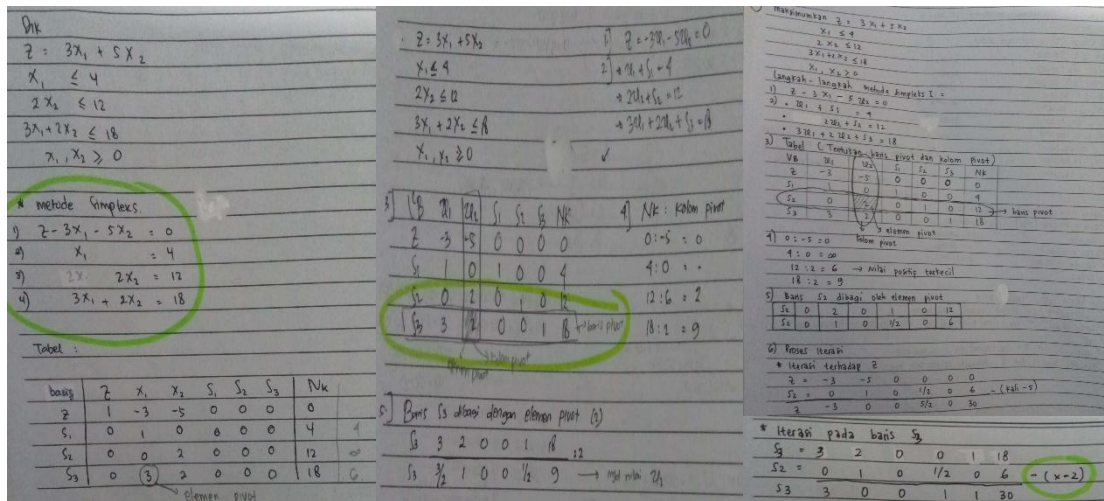 Dik
Z = 3X₁ + 5X₂
X₁ ≤ 4
2X₂ ≤ 12
3X₁ + 2X₂ ≤ 18
X₁, X₂ ≥ 0
* metode Simpleks
1) Z - 3X₁ - 5X₂ = 0
2) X₁ = 4
3) 2X₂ = 12
4) 3X₁ + 2X₂ = 18
Tabel :
basis Z X₁ X₂ S₁ S₂ S₃ NK
Z 1 -3 -5 0 0 0 0
S₁ 0 1 0 0 0 0 4 4
S₂ 0 0 2 0 0 0 12 ∞
S₃ 0 3 2 0 0 0 18 6
elemen pivot
Z = 3X₁ + 5X₂
X₁ ≤ 4
2X₂ ≤ 12
3X₁ + 2X₂ ≤ 18
X₁, X₂ ≥ 0
1] Z = -3x₁ - 5x₂ = 0
2] → x₁ + S₁ = 4
→ 2x₂ + S₂ = 12
→ 3x₁ + 2x₂ + S₃ = 18
3] VB x₁ x₂ S₁ S₂ S₃ NK
Z -3 -5 0 0 0 0
S₁ 1 0 1 0 0 4
S₂ 0 2 0 1 0 12
S₃ 3 2 0 0 1 18 → baris pivot
kolom pivot
elemen pivot
4] NK : kolom pivot
0 : -5 = 0
4 : 0 = -
12 : 6 = 2
18 : 2 = 9
5] Baris S₃ dibagi dengan elemen pivot (2)
S₃ 3 2 0 0 1 18 :2
S₃ 3/2 1 0 0 1/2 9 →
maksimumkan Z = 3X₁ + 5X₂
X₁ ≤ 4
2X₂ ≤ 12
3X₁ + 2X₂ ≤ 18
X₁, X₂ ≥ 0
Langkah - langkah metode Simpleks I :
1) Z - 3X₁ - 5x₂ = 0
2) • x₁ + S₁ = 4
• 2x₂ + S₂ = 12
• 3x₁ + 2x₂ + S₃ = 18
3) Tabel (Tentukan baris pivot dan kolom pivot)
VB x₁ x₂ S₁ S₂ S₃ NK
Z -3 -5 0 0 0 0
S₁ 1 0 1 0 0 4
S₂ 0 2 0 1 0 12 → baris pivot
S₃ 3 2 0 0 1 18
elemen pivot
kolom pivot
4) 0 : -5 = 0
4 : 0 = ∞
12 : 2 = 6 → nilai positif terkecil
18 : 2 = 9
5) Baris S₂ dibagi oleh elemen pivot
S₂ 0 2 0 1 0 12
S₂ 0 1 0 1/2 0 6
6) Proses Iterasi
* Iterasi terhadap Z
Z = -3 -5 0 0 0 0
S₂ = 0 1 0 1/2 0 6 - (kali -5)
Z -3 0 0 5/2 0 30
* Iterasi pada baris S₃
S₃ = 3 2 0 0 1 18
S₂ = 0 1 0 1/2 0 6 - (x-2)
S₃ 3 0 0 1 1 30